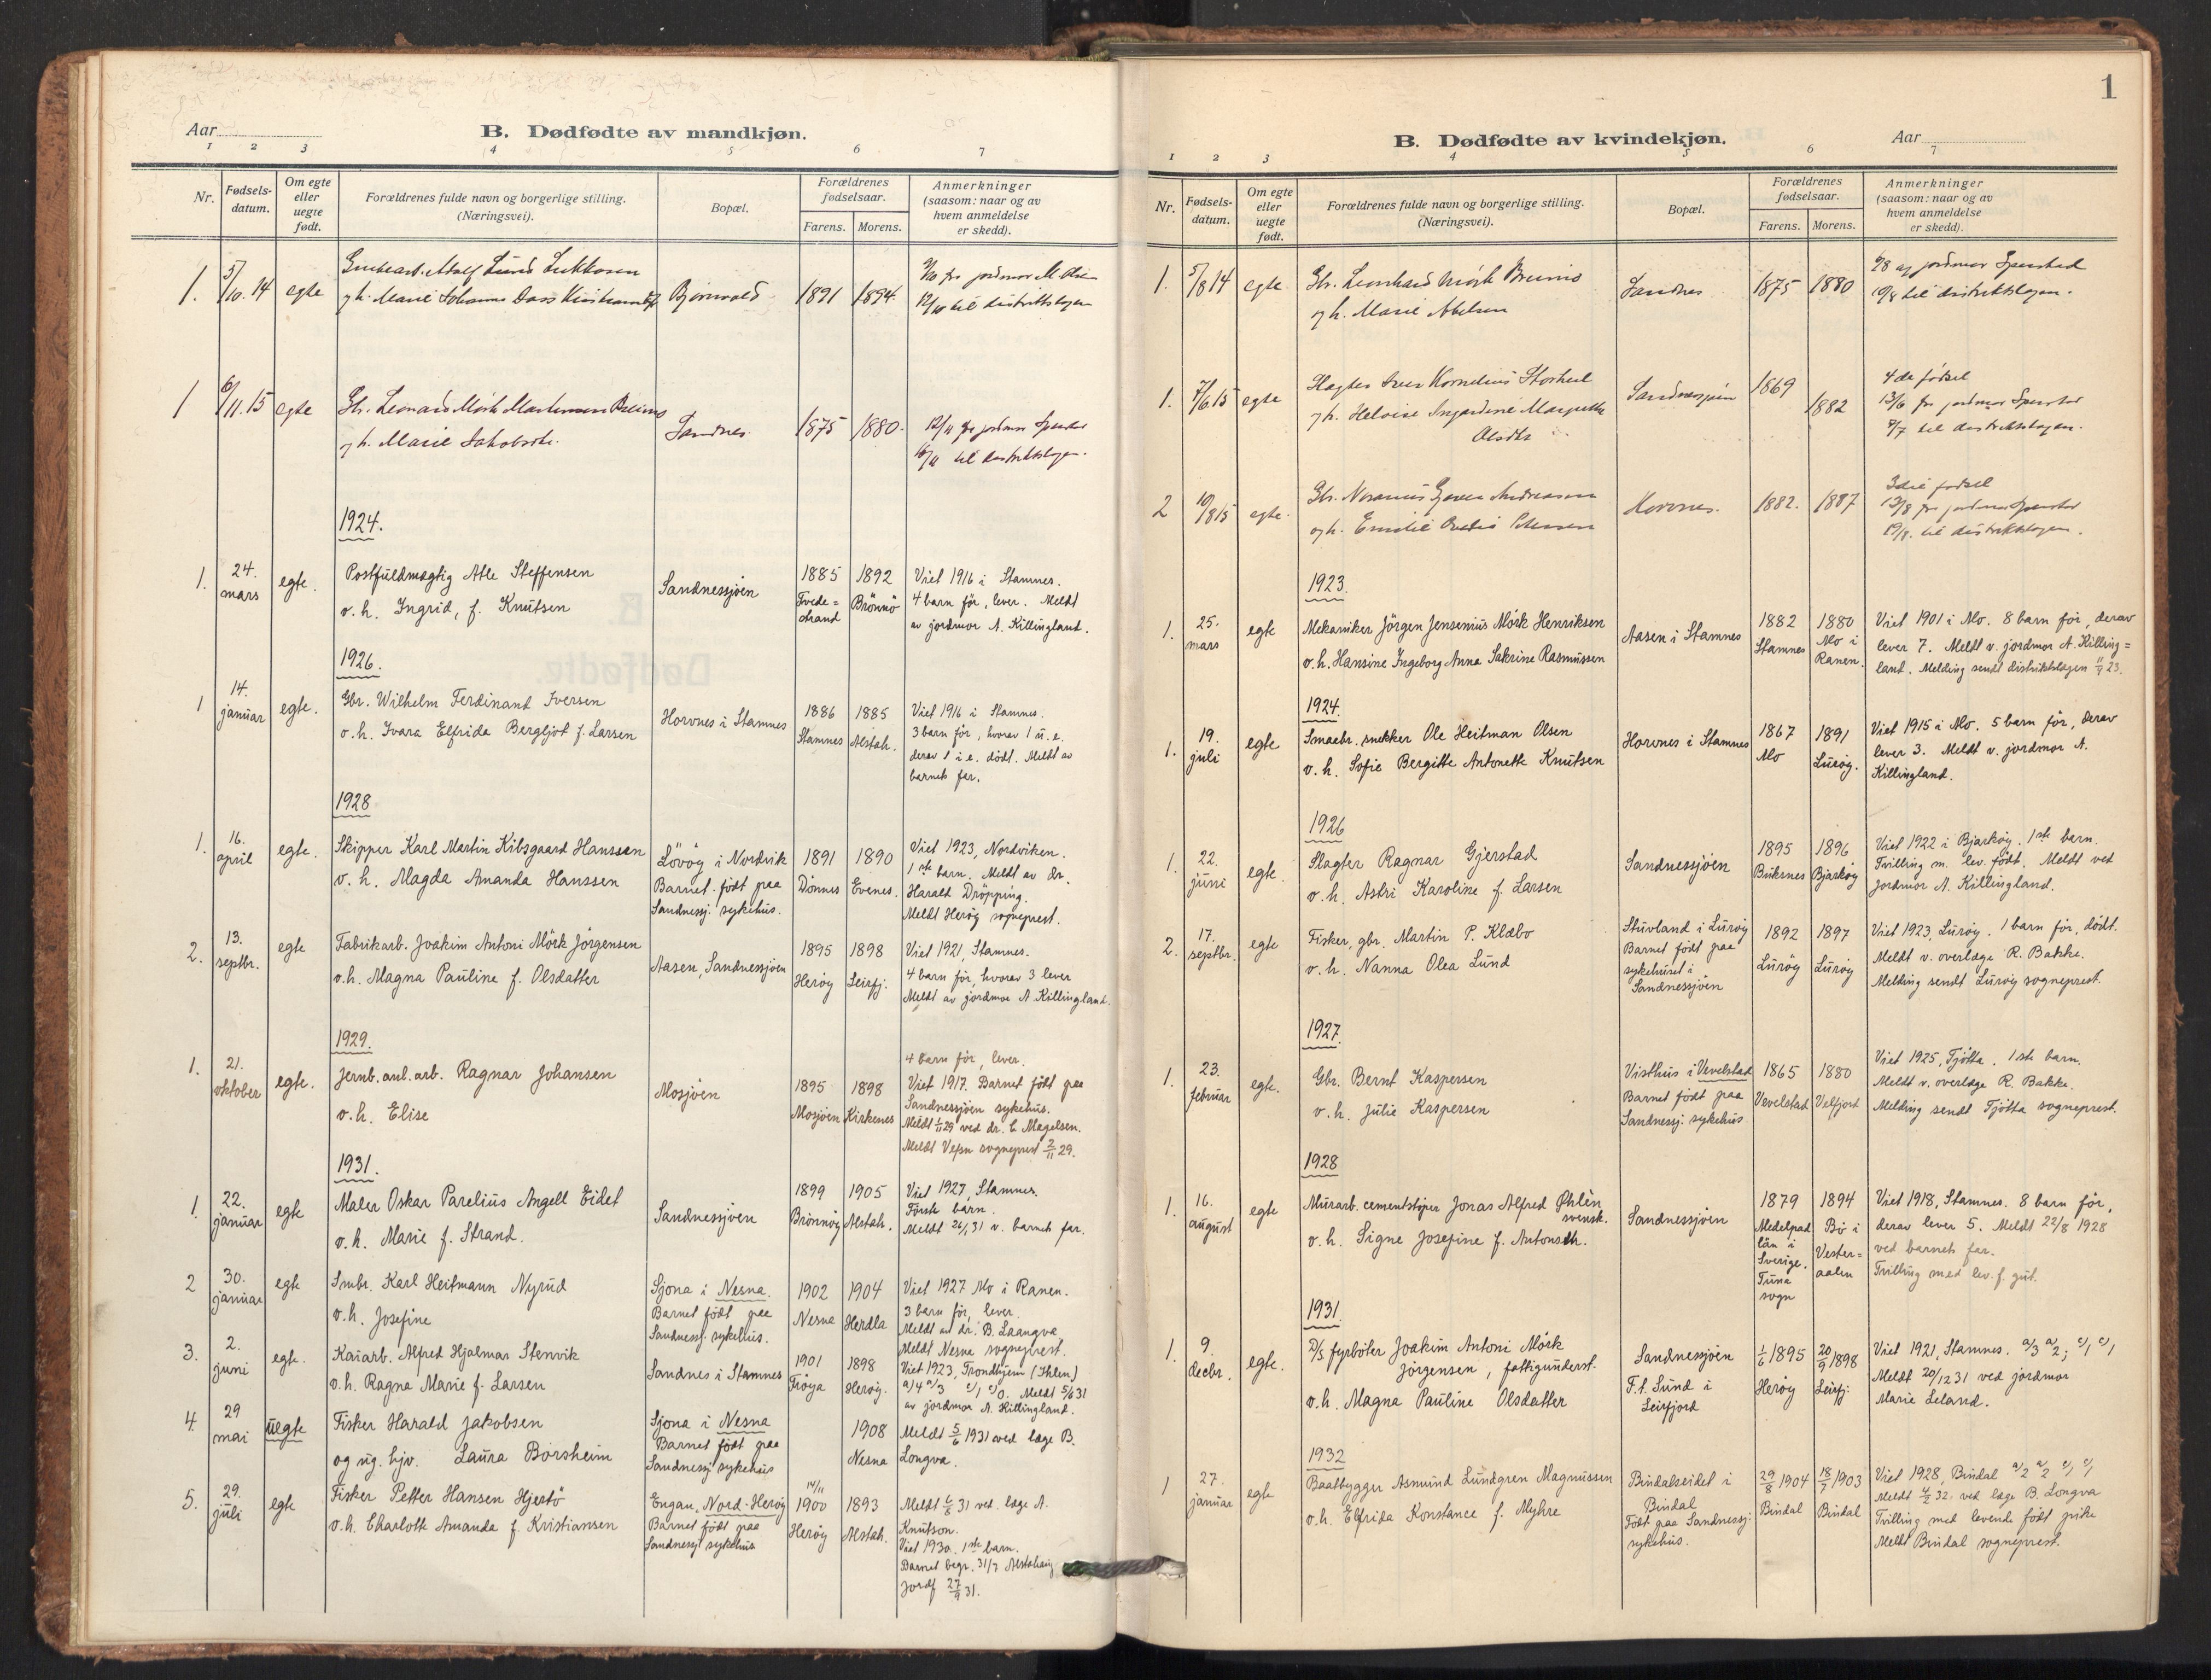 Aar
B. Dødfødte av mandkjøn.
1 2 3 4 5 6 7
Nr.
Fødsels-
datum.
Om egte
eller
uegte
født.
Forældrenes fulde navn og borgerlige stilling.
(Næringsvei).
Bopæl.
Forældrenes
fødselsaar.
Farens. Morens.
Anmerkninger
(saasom: naar og av
hvem anmeldelse
er skedd).
1. 5/10. 14 egte
og h. Marie
1891 1894.
12/10 til distriktslægen
1 6/11. 15 egte
og h. Marie Jakobsdtr.
Sandnes
1875 1880.
til distriktslægen.
1924.
1. 24. mars egte.
Postfuldmægtig Atle Steffensen
o. h. Ingrid, f. Knutsen
Sandnessjøen
1885 Tvede=
strand
1892 Brönnö
Viet 1916 i Stamnes.
4 barn för, lever. Meldt
av jordmor A. Killingland.
1926.
1 14. januar egte.
Gbr. Wilhelm Ferdinand Iversen
o. h. Ivara Elfrida Bergljot f. Larsen
Horvnes i Stamnes
1886 Stamnes
1885 Alstah.
Viet 1916 i Stamnes.
3 barn för, hvorav 1 u. e.
derav 1 i e. dödt. Meldt av
barnets far.
1928
1. 16. april egte.
Skipper Karl Martin Kibsgaard Hanssen
o. h. Magda Amanda Hanssen
Lövöy i Nordvik
Barnet födt paa
Sandnessj. sykehus.
1891 Dönnes
1890 Evenes.
Viet 1923, Nordviken.
1ste barn. Meldt av dr.
Harald Dröpping.
Meldt Heröy sogneprest.
2. 13. septbr. egte
Fabrikarb. Joakim Antoni Mörk Jörgensen
o. h. Magna Pauline f. Olsdatter
Aasen, Sandnessjøen
1895 Heröy
1898 Leirfj.
Viet 1921, Stamnes.
4 barn för, hvorav 3 lever
Meldt av jordmor A. Killingland.
1929.
1. 21. oktober egte.
Jernb. anl. arb. Ragnar Johansen
o. h. Elise
Mosjöen
1895 Mosjöen
1898 Kirkenes
4 barn för, lever.
Viet 1917. Barnet födt paa
Sandnessjöen sykehus.
Meldt 1/11 29 ved dr. C. Magelsen.
Meldt Vefsn sogneprest 2/11 29.
1931.
1. 22. januar egte
Maler Oskar Parelius Angell Eidet
o. h. Marie f. Strand.
Sandnessjöen
1899 Brönnöy
1905 Alstah.
Viet 1927, Stamnes.
Første barn.
Meldt 26/1 31 v. barnets far.
2 30. januar egte
Smbr. Karl Heitmann Nyrud
o. h. Josefine
Sjona i Nesna.
Barnet födt paa
Sandnessj. sykehus.
1902 Nesna
1904 Herdla
Viet 1927 Mo i Ranen.
3 barn för, lever.
Meldt av dr. B. Laangva
Meldt Nesna sogneprest.
3. 2. juni egte.
Kaiarb. Alfred Hjalmar Stenvik
o. h. Ragna Marie f. Larsen
Sandnes i Stamnes
1901 Fröya
1898 Heröy.
Viet 1923, Trondhjem (Ihlen)
a) 4 a/3 c/1 c/0. Meldt 5/6 31
av jordmor A. Killingland.
4. 29 mai uegte
Fisker Harald Jakobsen
og ug. hjv. Laura Börsheim
Sjona i Nesna
Barnet födt paa
Sandnessj sykehus
1908 Nesna
Meldt 5/6 1931 ved læge B.
Longva.
5. 29. juli egte
Fisker Petter Hansen Hjertö
o. h. Charlotte Amanda f. Kristiansen
Engan, Nord-Heröy
Barnet födt paa
Sandnessj sykehus
14/11 1900 Heröy
1893 Alstah.
Meldt 1/8 31 ved. læge A.
Knutson.
Viet 1930. 1ste barn.
Barnet begr. 31/7 Alstahaug
Jordf 27/9 31.
1
B. Dødfødte av kvindekjøn.
Aar
1 2 3 4 5 6 7
Nr.
Fødsels-
datum.
Om egte
eller
uegte
født.
Forældrenes fulde navn og borgerlige stilling.
(Næringsvei).
Bopæl.
Forældrenes
fødselsaar.
Farens. Morens.
Anmerkninger
(saasom: naar og av
hvem anmeldelse
er skedd).
1. 5/8 14 egte
Gbr. Leonhard Mörk Breimo
og h. Marie Abelsen
Sandnes
1875 1880
10/8 til distriktslægen.
1. 7/6. 15 egte
Slagter Iver Kornelius Storheil
og h. Heloise Ingardine Margrethe
Olsdtr
Sandnessjöen
1869 1882
4de födsel
13/6 fra jordmor
9/7 til distriktslægen.
2 10/8 15 egte.
og h. Emilie Petersen
Horvnes.
1882. 1887
3die födsel
til distriktslægen.
1923.
1. 25. mars egte
Mekaniker Jörgen Jensenius Mörk Henriksen
o. h. Hansine Ingeborg Anna Sakrine Rasmussen
Aasen i Stamnes
1882 Stamnes
1880 Mo i
Ranen.
Viet 1901 i Mo. 8 barn för, derav
lever 7. Meldt v. jordmor A. Killing=
land. Melding sendt distriktslægen 11/9 23.
1924.
1. 19. juli egte
Smaabr. snekker Ole Heitman Olsen
o. h. Sofie Bergitte Antonette Knutsen
Horvnes i Stamnes
1867 Mo
1891 Luröy.
Viet 1915 i Mo. 5 barn för, derav
lever 3. Meldt v. jordmor A.
Killingland.
1926
1. 22. juni egte.
Slagter Ragnar Gjerstad
o. h. Astri Karoline f. Larsen
Sandnessjöen
1895 Buksnes
1896 Bjarköy
Viet 1922 i Bjarköy. 1ste barn.
Tvilling m. lev. födt. Meldt ved
jordmor A. Killingland.
2. 17. septbr. egte
Fisker, gbr. Martin P. Klæbo
o. h. Nanna Olea Lund
Stuvland i Luröy
Barnet födt paa
sykehuset i
Sandnessjöen
1892 Luröy
1897 Luröy
Viet 1923, Luröy. 1 barn för, dödt.
Meldt v. overlæge R. Bakke.
Melding sendt Luröy sogneprest.
1927.
1. 23. februar egte.
Gbr. Bernt Kaspersen
o. h. Julie Kaspersen
Visthus i Vevelstad
Barnet födt paa
Sandnessj. sykehus
1865 Vevelstad
1880 Velfjord
Viet 1925, Tjötta. 1ste barn.
Meldt v. overlæge R. Bakke.
Melding sendt Tjötta sogneprest.
1928
1. 16. august egte
Murarb. cementstöper Jonas Alfred Øhlén
svensk.
o. h. Signe Josefine f. Antonsdtr.
Sandnessjöen
1879 Medelpad
län i
Sverige.
Tuna
sogn
1894 Bö i
Vester=
aalen
Viet 1918, Stamnes. 8 barn för,
derav lever 5. Meldt 22/8 1928
ved barnets far.
Tvilling med lev. f. gut.
1931.
1. 9. decbr. egte.
D/S fyrböter Joakim Antoni Mörk
Jörgensen, fattigunderst.
o. h. Magna Pauline Olsdatter
Sandnessjöen
F. f. Sund i
Leirfjord
1/6 1895 Heröy
20/9 1898 Leirfj.
Viet 1921, Stamnes. a/3 a/2; c/1 c/1
Meldt 20/12 31 ved jordmor
Marie Leland.
1932
1 27. januar egte
Baatbygger Asmund Lundgren Magnussen
o. h. Elfrida Konstance f. Myhre
Bindalseidet i
Bindal
Födt paa Sandnessj.
sykehus.
29/8 1904 Bindal
18/7 1903 Bindal
Viet 1928, Bindal a/2 a/2 c/1 c/1
Meldt 4/2 32 ved læge B. Longva
Tvilling med levende födt pike
Meldt Bindal sogneprest.